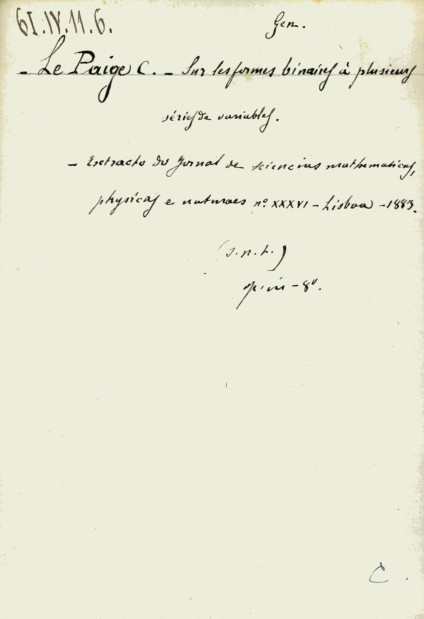 61.IV.11.6.
Gen.
- Le Paige C. - Sur les formes binaires à plusieurs
séries de variables.
- Extracto do Jornal de sciencias mathematicas,
physicas e naturaes nº XXXVI - Lisboa - 1883.
(s.n.t.)
- 8º.
C.